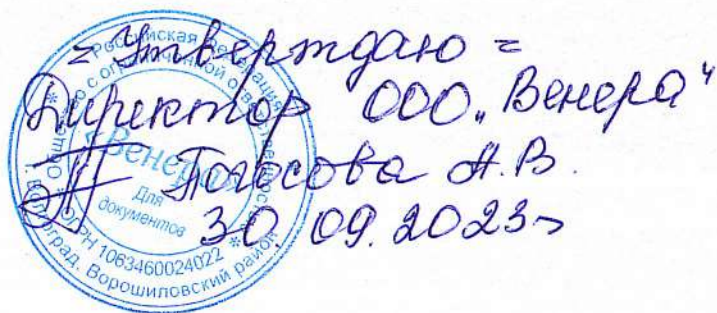 = Утверждаю =
Директор ООО „Венера“
Погосова А.В.
30.09.2023г
Российская Федерация
Общество с ограниченной ответственностью
«Венера»
Для
документов
* ОГРН 1063460024022 *
Волгоград. Ворошиловский район